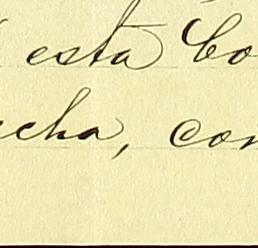 esta Co
cha, con